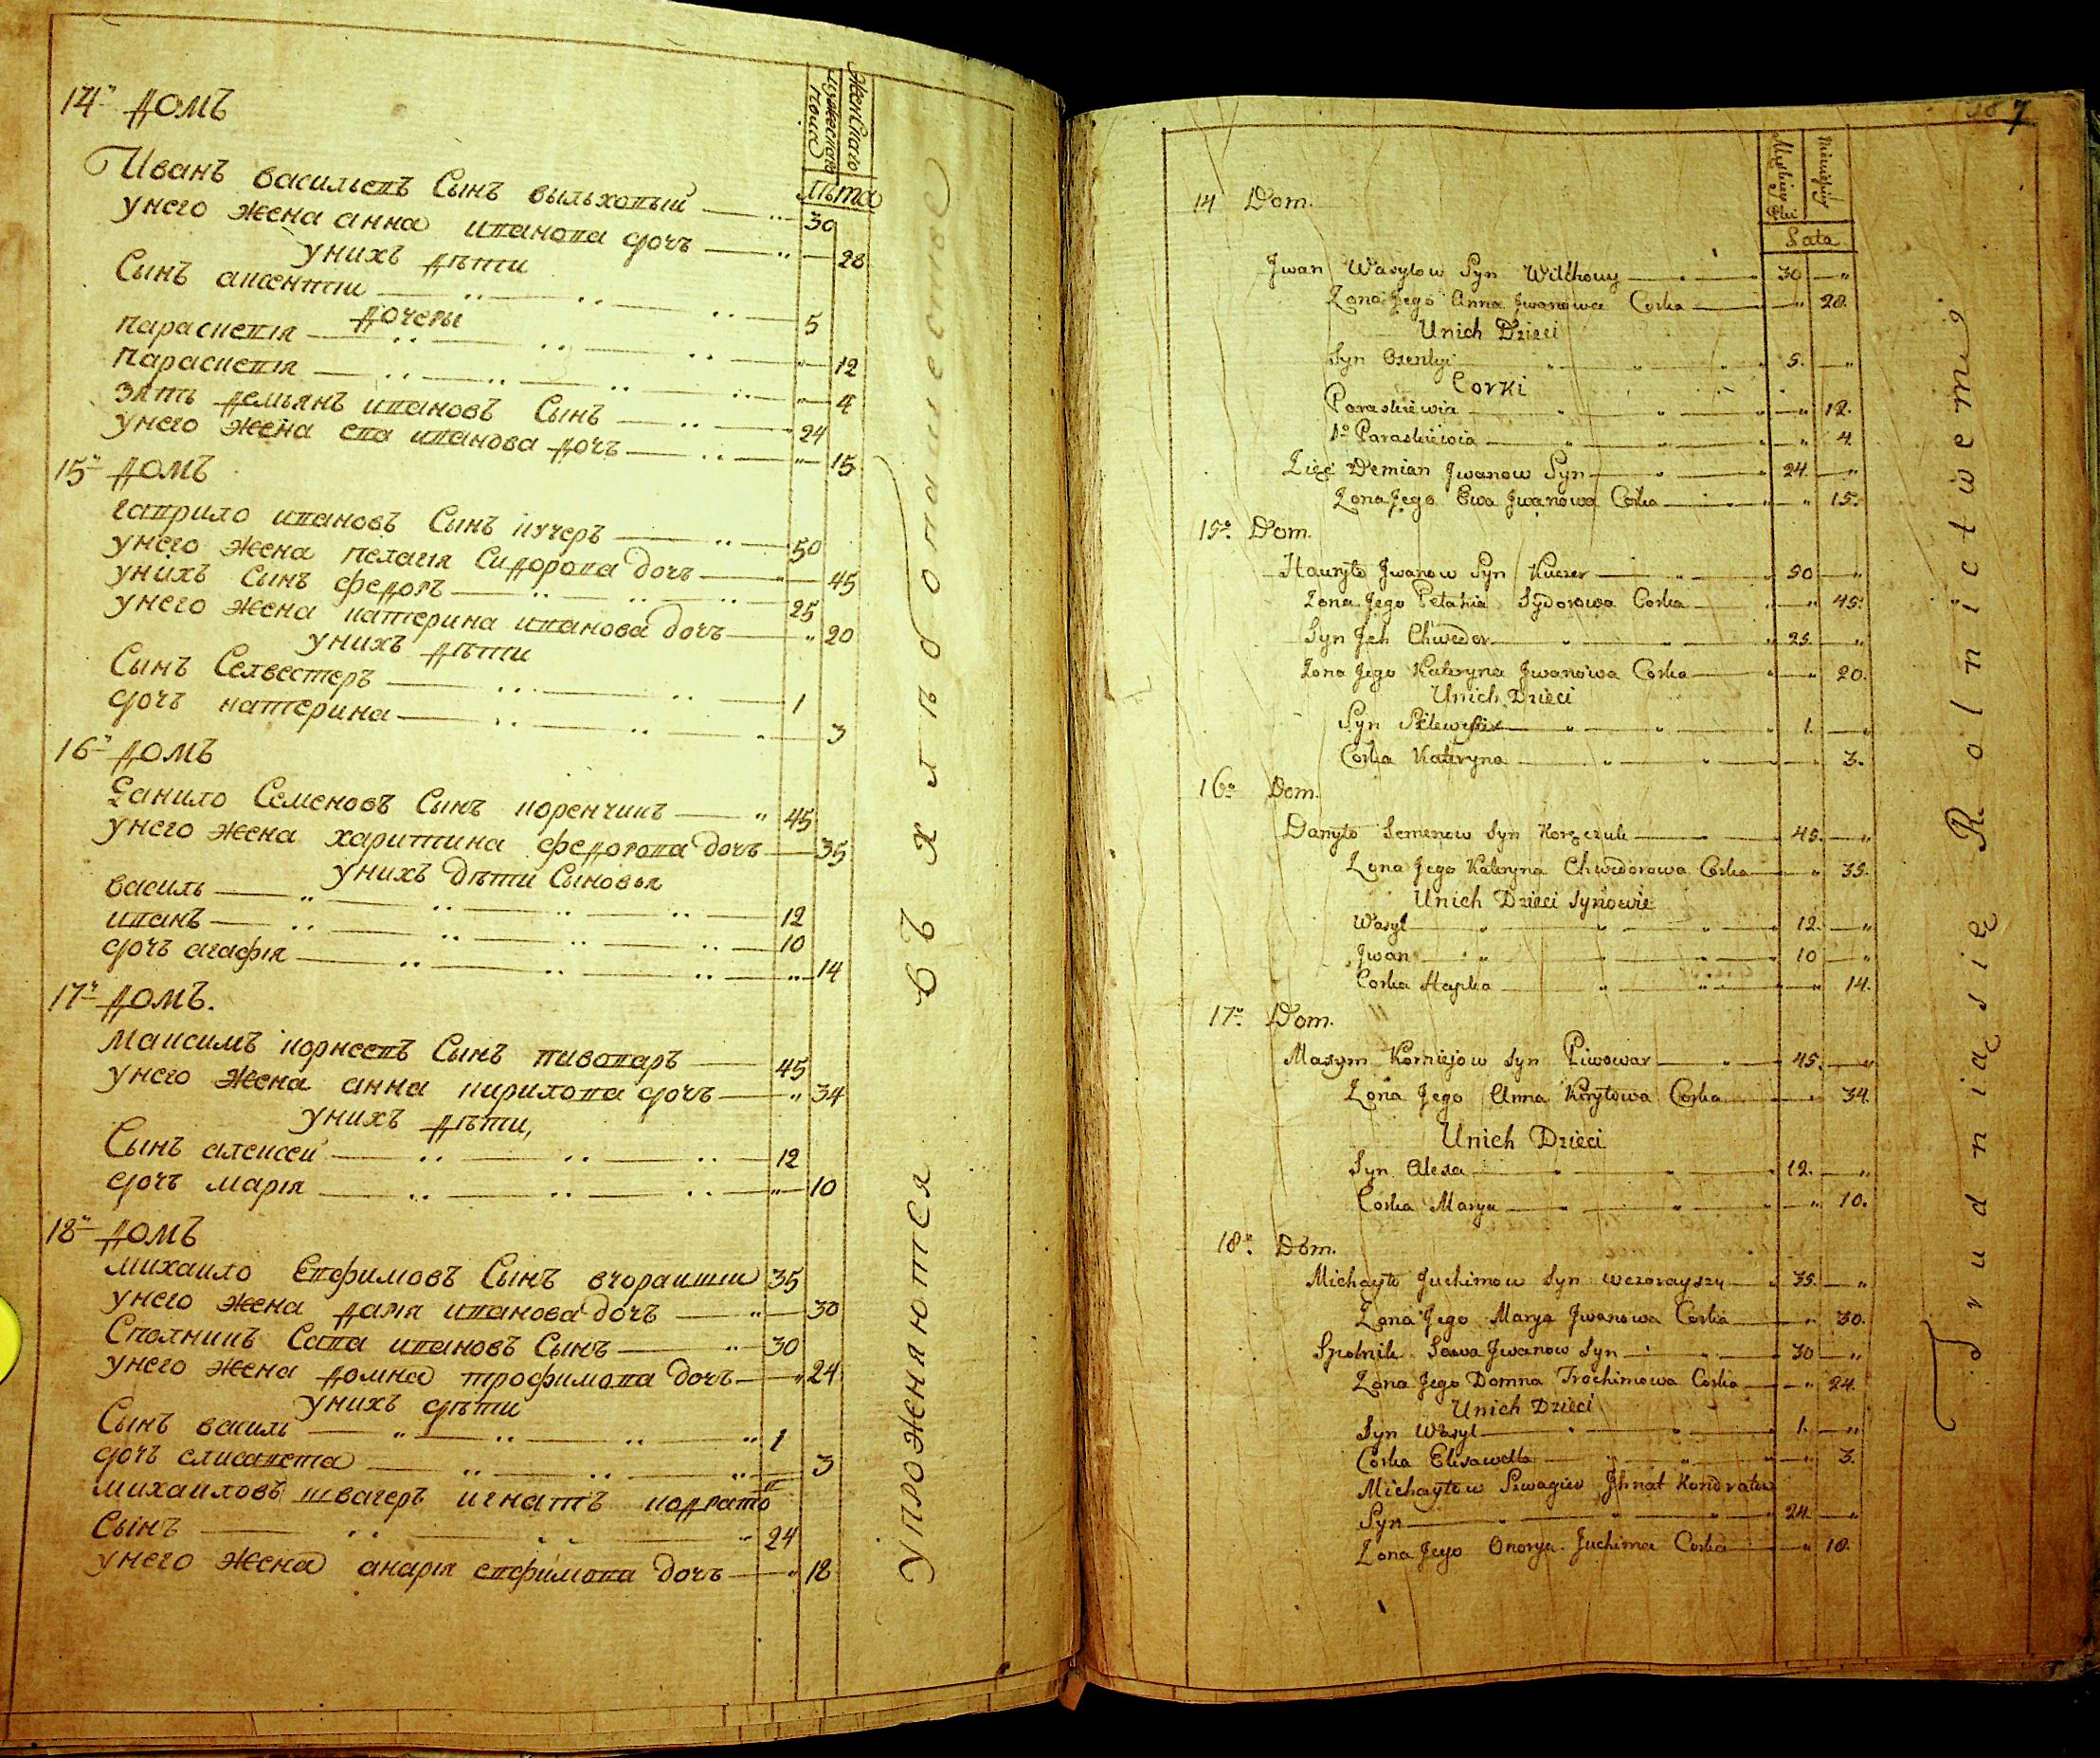 14 ДОМЪ
Женскаго
мужескаго
пола
Лѣта
Иванъ васильевъ Сынъ вильховый 30
унего жена анна иванова дочь 28
унихъ дѣти
Сынъ авсентии 5
дочеры
параскевія 12
параскевія 4
зять демьянъ ивановъ Сынъ 24
унего жена ева иванова дочь 15
15 ДОМЪ
гаврило ивановъ Сынъ кучеръ 50
унего жена пелагія Сидорова дочь 45
унихъ Синъ федоръ 25
унего жена катерина иванова дочь 20
унихъ дѣти
Сынъ Селвестеръ 1
дочь катерина 3
16 ДОМЪ
Данило Семеновъ Сынъ коренчукъ 45
унего жена харитина федорова дочь 35
унихъ дѣти Сыновья
василь 12
иванъ 10
дочь агафія 14
17 ДОМЪ.
Максимъ корнеевъ Сынъ пивоваръ 45
унего жена анна кирилова дочь 34
унихъ дѣти,
Сынъ алексеи 12
дочь марія 10
18 ДОМЪ
михаило Евфимовъ Сынъ вчораишии 35
унего жена иванова дочь 30
Сполникъ Сава ивановъ Сынъ 30
унего жена домна трофимова дочь 24
унихъ дѣти
Сынъ василь 1
дочь елисавета 3
михаиловъ швагеръ игнатъ кондрато
Сынъ 24
унего жена евфимова дочь 18
упрожняются въ хлѣбопашество
7
Męskiey Płci
Lata
14 Dom.
Jwan Wasylow Syn Wilchowy 30
Zona Jego Anna Jwanowa Corka 28.
Unich Dzieci
Syn Oxentyi 5.
Corki
Paraskiewia 12.
2° Paraskiewia 4.
Zięć Demian Jwanow Syn 24.
Zona Jego Ewa Jwanowa Corka 15.
15° Dom.
Hawryło Jwanow Syn Kuczer 50
Zona Jego Pelahia Sydorowa Corka 45.
Syn Jch Chwedor 25.
Zona Jego Kateryna Jwanowa Corka 20.
Unich Dzieci
Syn 1.
Corka Kateryna 3.
16° Dom.
Danyło Semenow Syn Koręczuk 45.
Zona Jego Kateryna Chwedorowa Corka 35.
Unich Dzieci Synowie
Wasyl 12.
Jwan 10
Corka Hapka 14.
17° Dom.
Maxym Korniejow Syn Piwowar 45.
Zona Jego Anna Kiryłowa Corka 34.
Unich Dzieci
Syn Alexa 12.
Corka Marya 10.
18° Dom.
Michayło Juchimow Syn Wczorayszy 35.
Zona Jego Marya Jwanowa Corka 30.
Spolnik Sawa Jwanow Syn 30
Zona Jego Domna Trochimowa Corka 24.
Unich Dzieci
Syn Wasyl 1.
Corka Elisawetta 3.
Michayłow Szwagier Jhnat Kondratow
Syn 24
Zona Jego Juchima Corka 18.
Trudnią się Rolnictwem